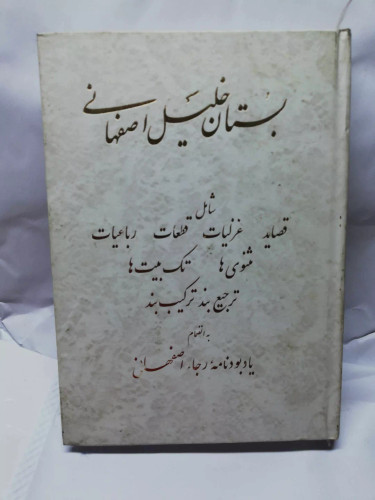 بستان خلیل اصفهانی
شامل
قصاید غزلیات قطعات رباعیات
مثنوی ها تک بیت ها
ترجیع بند ترکیب بند
به انضمام
یادبودنامهٔ رجاء اصفهانی